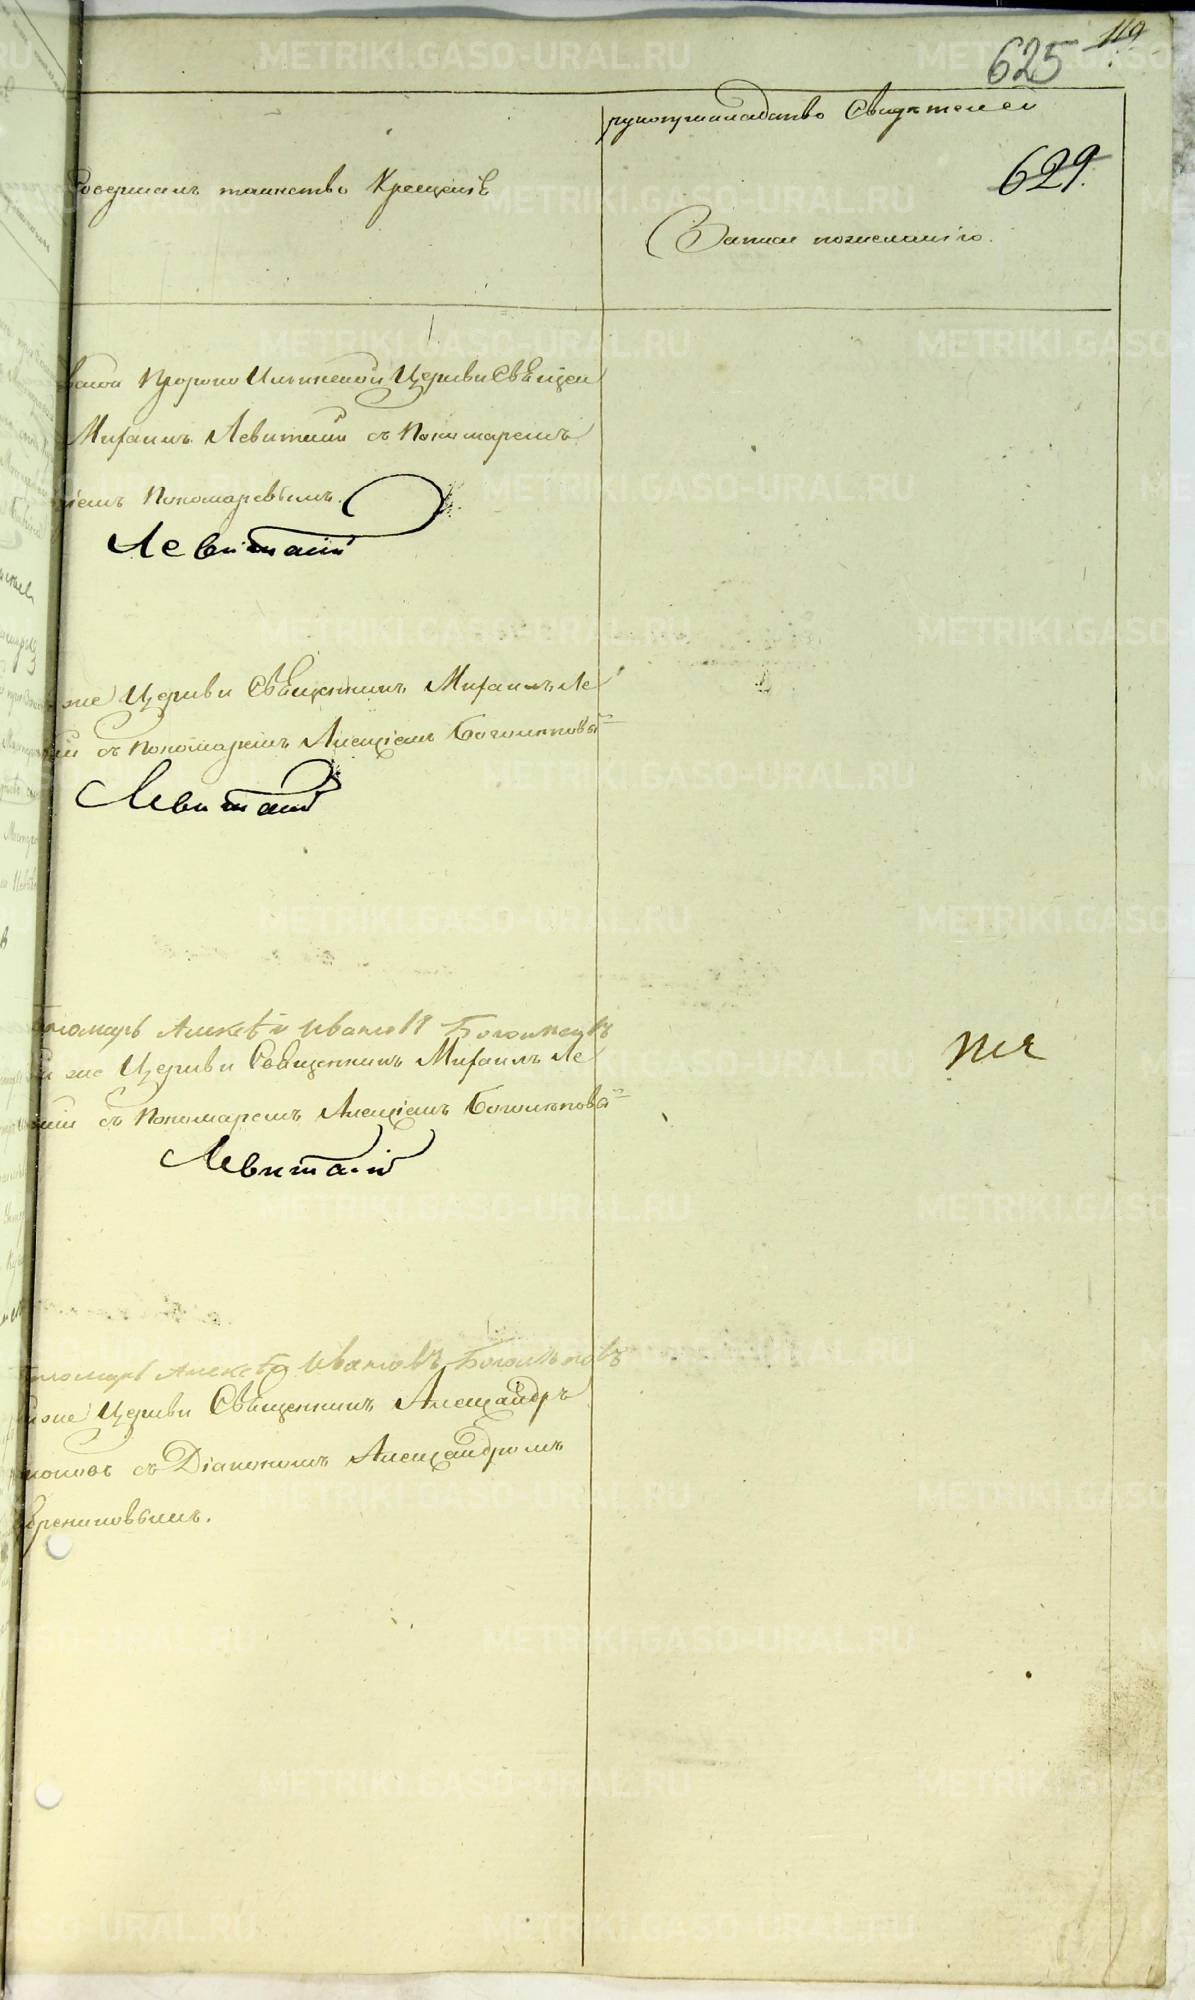 119
625
рукоприкладство Свидѣтелей
629.
совершалъ таинство Крещенія
Записи по желанію.
Пророко Ильинской Церкви Священ
Михаилъ Левитскій съ Пономаремъ
Пономаревымъ.
Левитскій
же Церкви Священникъ Михаилъ Ле
съ Пономаремъ Алексіемъ Боголѣповы
Левитскій
Пономарь Алексѣй Ивановъ Боголѣповъ
же Церкви Священникъ Михаилъ Ле
съ Пономаремъ Алексіемъ Боголѣповы
Левитскій
Пономарь Алексѣй Ивановъ Боголѣповъ
же Церкви Священникъ Александръ
съ Діакономъ Александромъ
METRIKI.GASO-URAL.RU